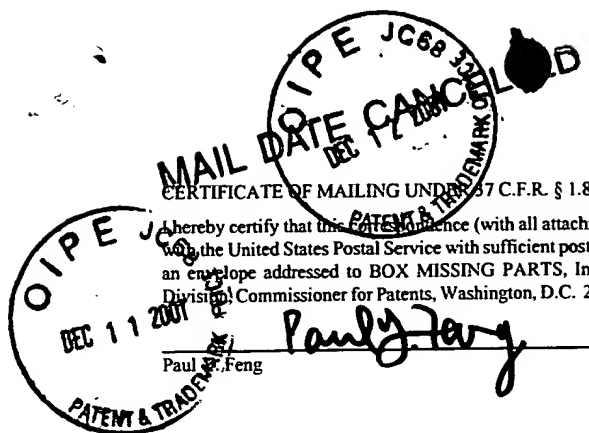 OIPE JC68
DEC 12 2001
PATENT & TRADEMARK OFFICE
MAIL DATE CANCELLED
CERTIFICATE OF MAILING UNDER 37 C.F.R. § 1.8
I hereby certify that this correspondence (with all attach
with the United States Postal Service with sufficient post
an envelope addressed to BOX MISSING PARTS, In
Division, Commissioner for Patents, Washington, D.C. 2
OIPE
DEC 11 2001
PATENT & TRADEMARK
Paul Feng